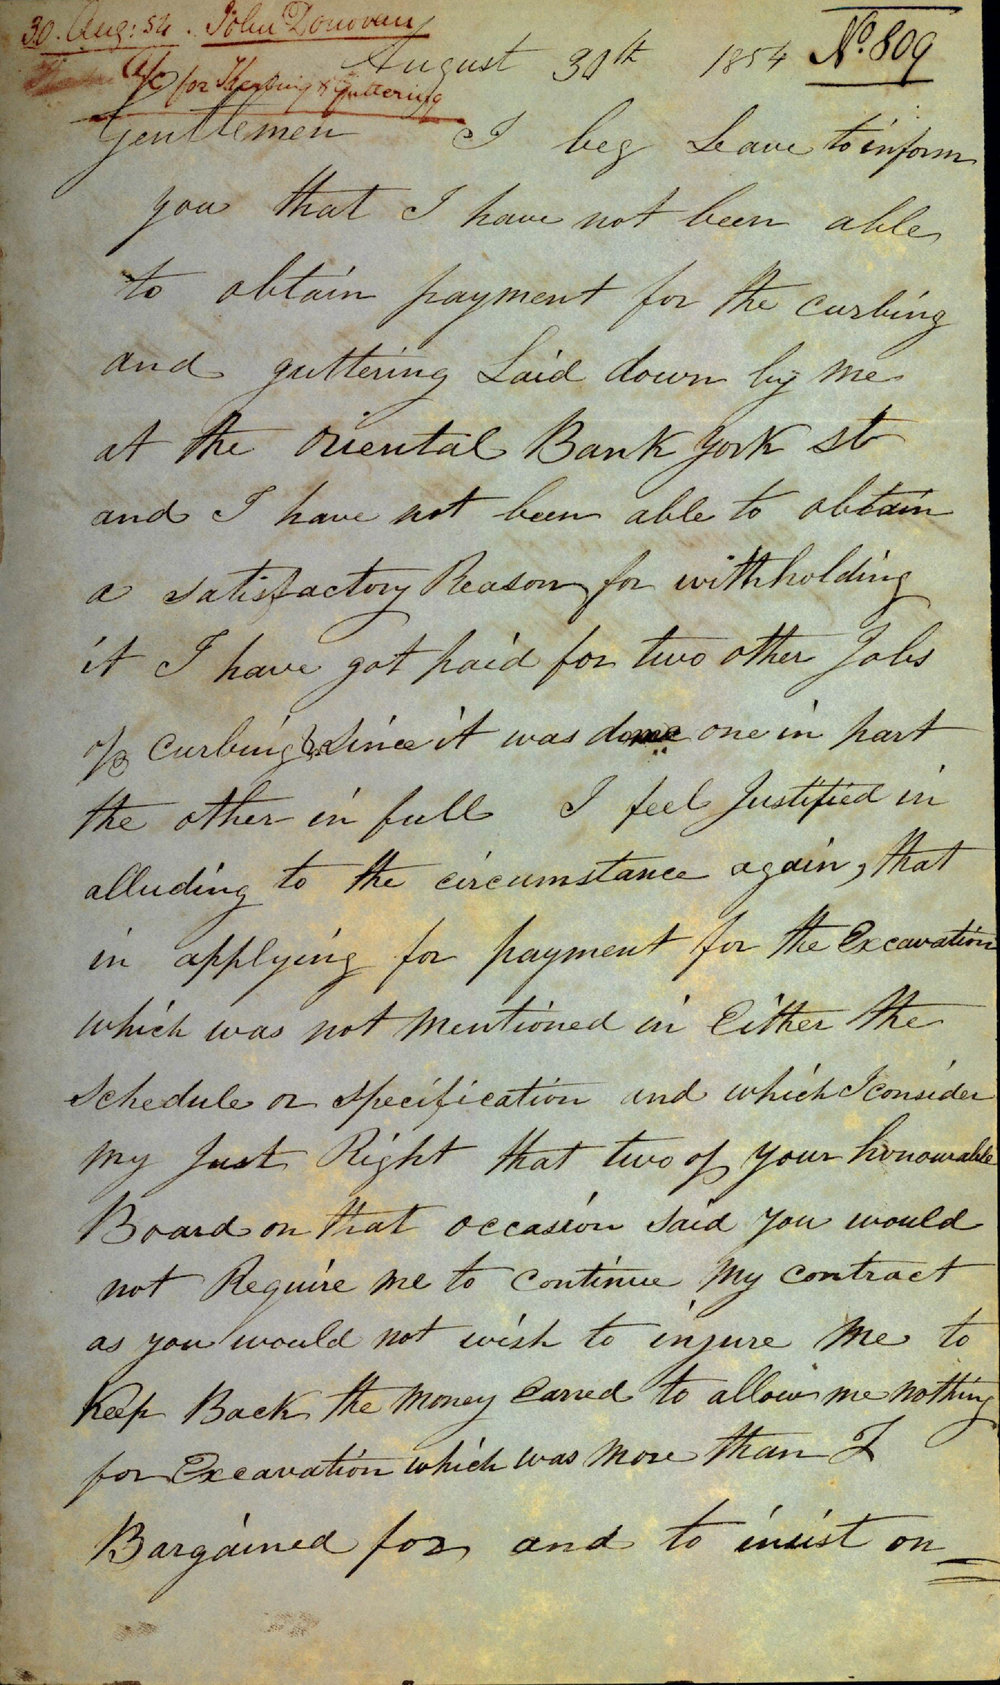 30. Aug: 54. John Donovan
A/c for Kerbing & guttering
No. 809
August 30th 1854
Gentlemen I beg Leave to inform
you that I have not been able
to obtain payment for the curbing
and guttering Laid down by me
at the Oriental Bank York st
and I have not been able to obtain
a satisfactory Reason for withholding
it I have got paid for two other Jobs
of curbing since it was done one in part
the other in full I feel Justified in
alluding to the circumstance again, that
in applying for payment for the Excavation
which was not mentioned in Either the
schedule or specification and which I consider
my Just Right that two of your honourable
Board on that occasion said you would
not Require me to continue my contract
as you would not wish to injure me to
Keep Back the money Earned to allow me nothing
for Excavation which was more than I
Bargained for and to insist on